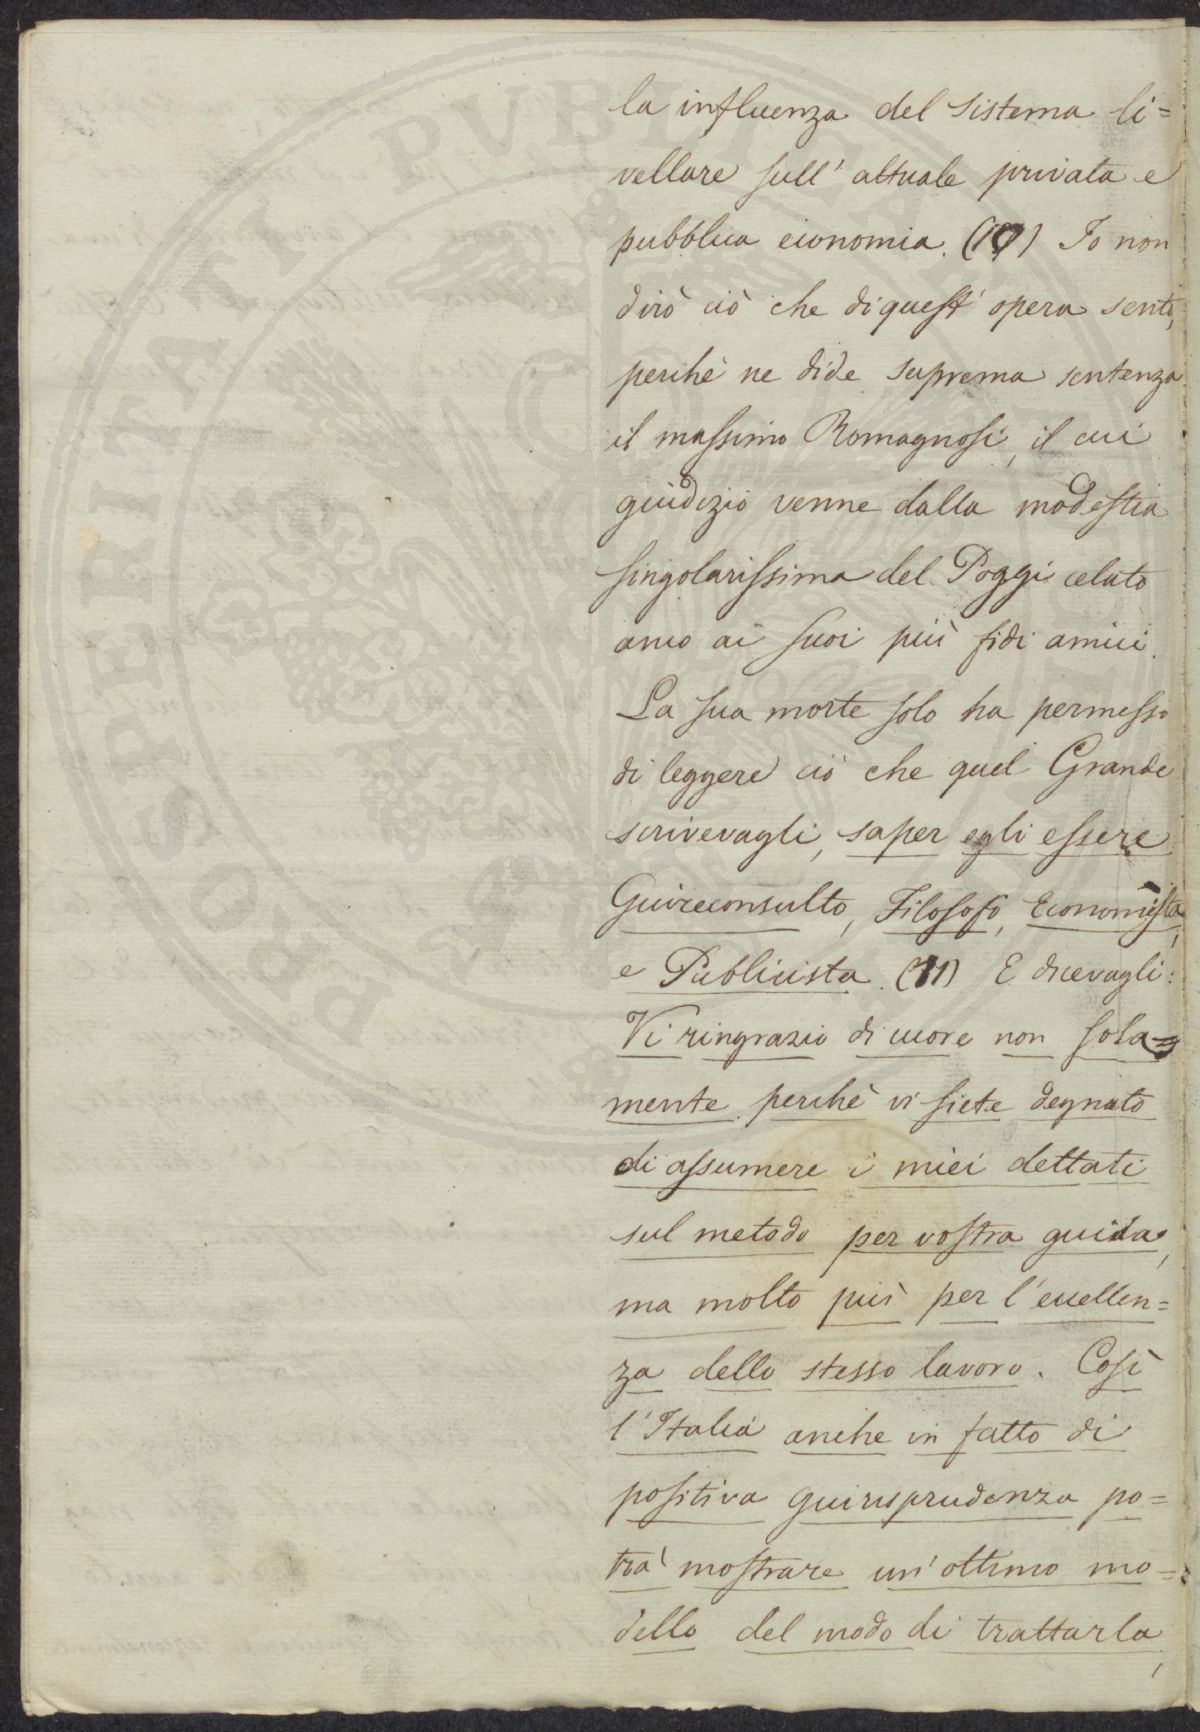 la influenza del sistema li=
vellare sull' attuale privata e
pubblica economia. (10) Io non
dirò ciò che di quest' opera sento,
perchè ne diede suprema sentenza
il massimo Romagnosi, il cui
giudizio venne dalla modestia
singolarissima del Poggi celato
anco ai suoi più fidi amici.
La sua morte solo ha permesso
di leggere ciò che quel Grande
scrivevagli, saper egli essere
Guireconsulto, Filosofo, Economista,
e Publicista. (11) E dicevagli:
Vi ringrazio di cuore non sola=
mente perchè vi siete degnato
di assumere i miei dettati
sul metodo per vostra guida,
ma molto più per l'eccellen=
za dello stesso lavoro. Così
l'Italia anche in fatto di
positiva guirisprudenza po=
trà mostrare un'ottimo mo=
dello del modo di trattarla,